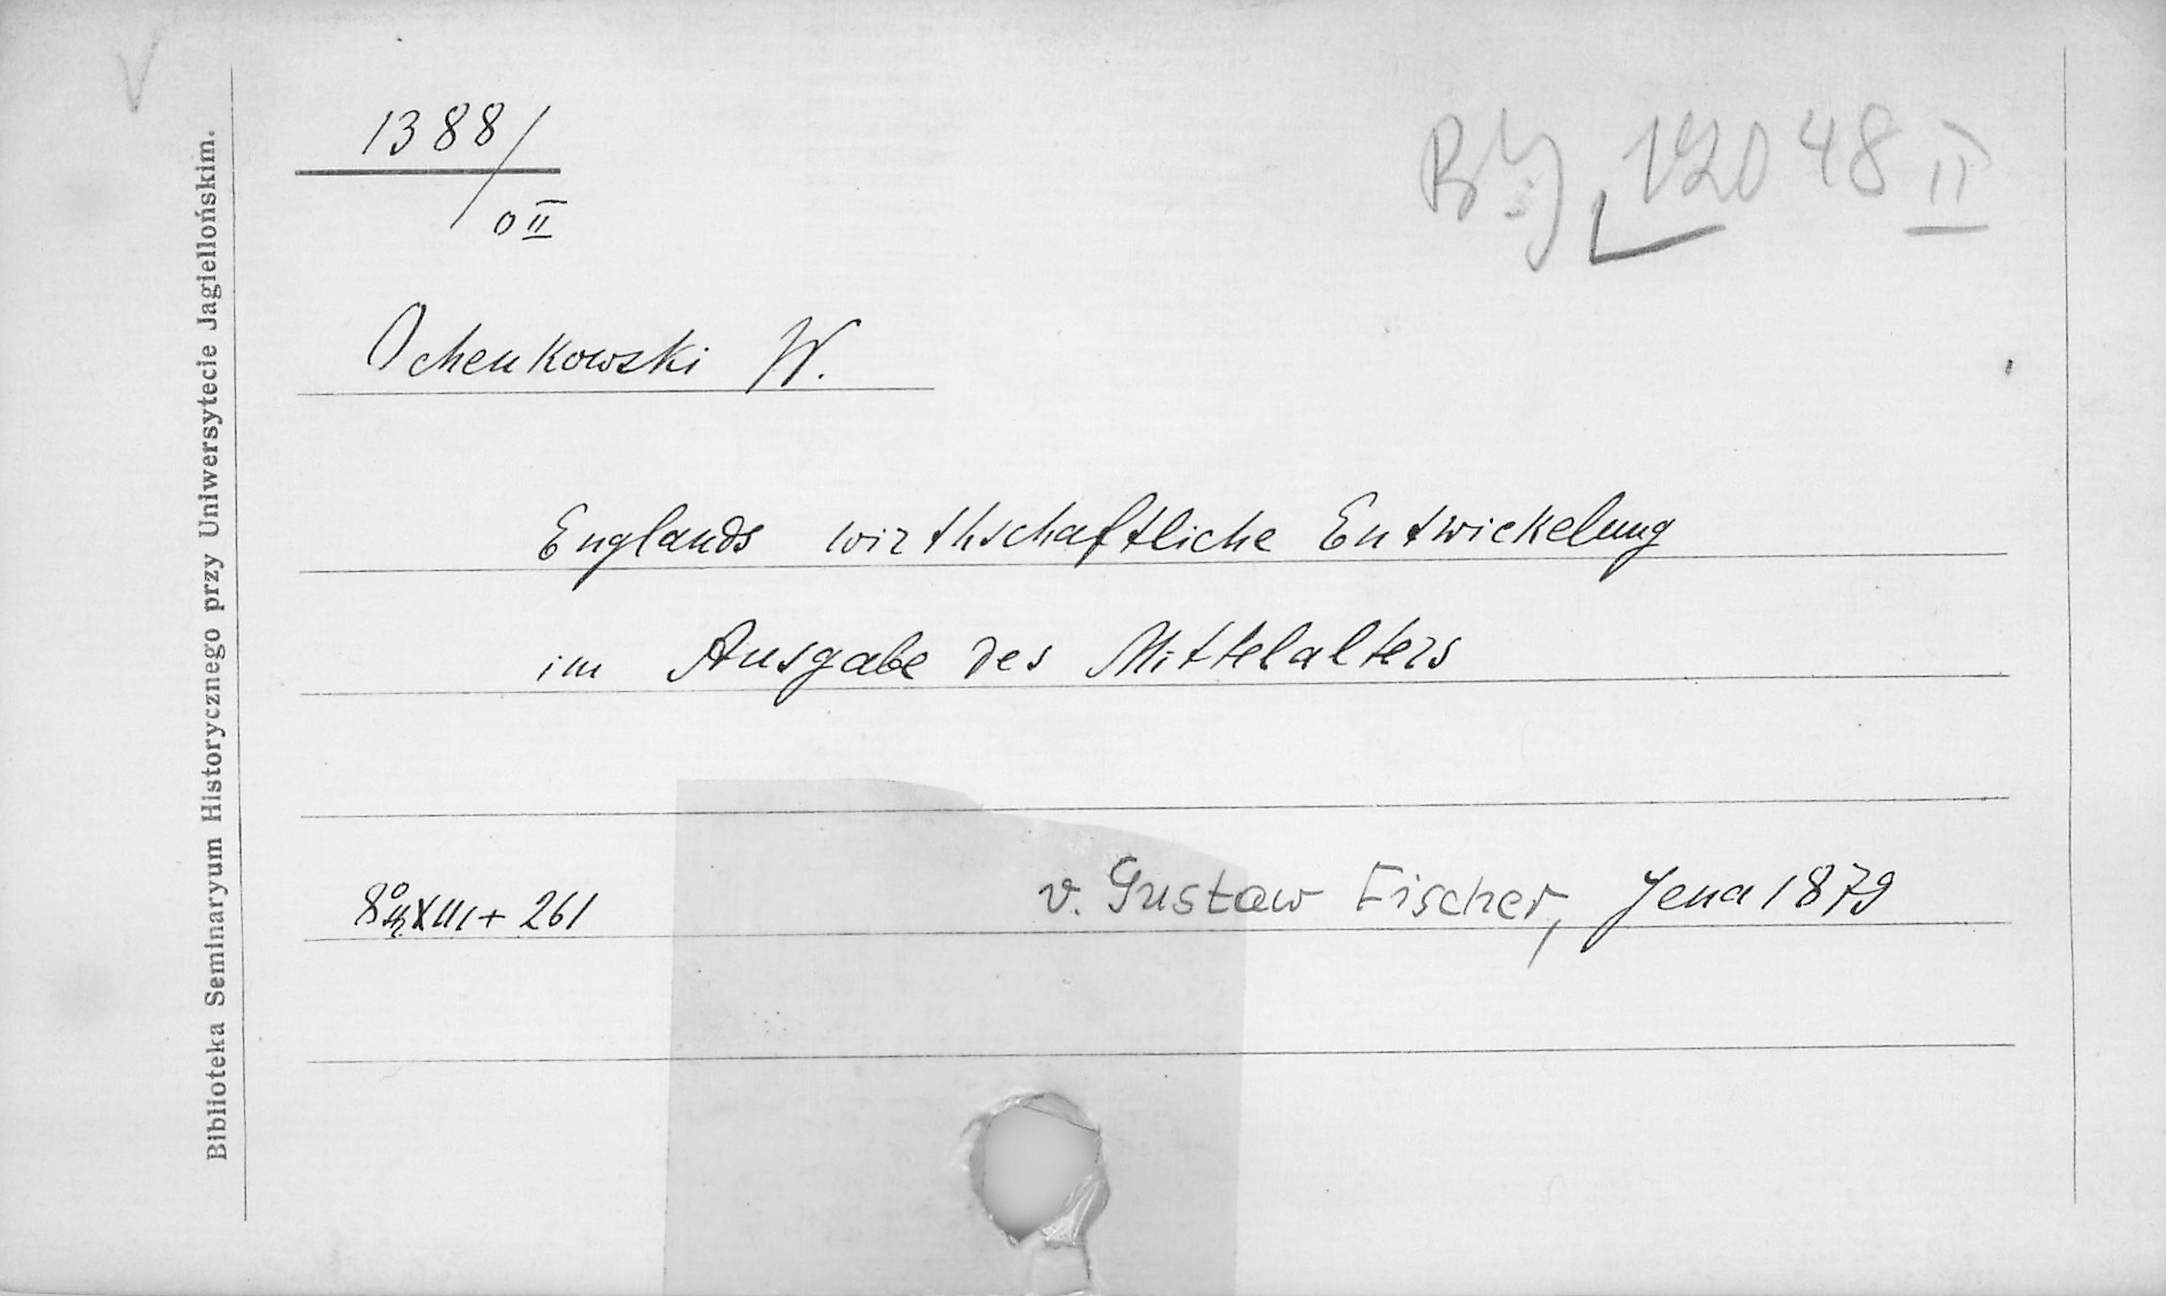 1388/
0 II
BJ 12048 II
Ochenkowski W.
Englands wirthschaftliche Entwickelung
im Ausgabe des Mittelalters
8° XIII + 261 v. Gustaw Fischer, Jena 1879
Biblioteka Seminaryum Historycznego przy Uniwersytecie Jagiellońskim.